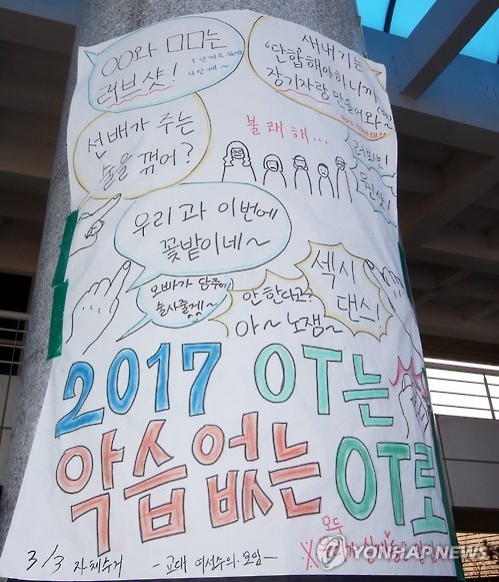 OO와 ㅁㅁ는
러브샷!
새내기는
'단합해야하니까
장기자랑 만들어와~'
선배가 주는
술을 꺾어?
불쾌해...
러브샷!
원샷!
우리 과 이번에
꽃밭이네~
오빠가 담주에
술사줄게~
안한다고?
아~ 노잼~
섹시
댄스!
2017 OT는
악습 없는
OT로
모두
3/3 자체수거
- 교대 여성주의 모임 -
YONHAPNEWS